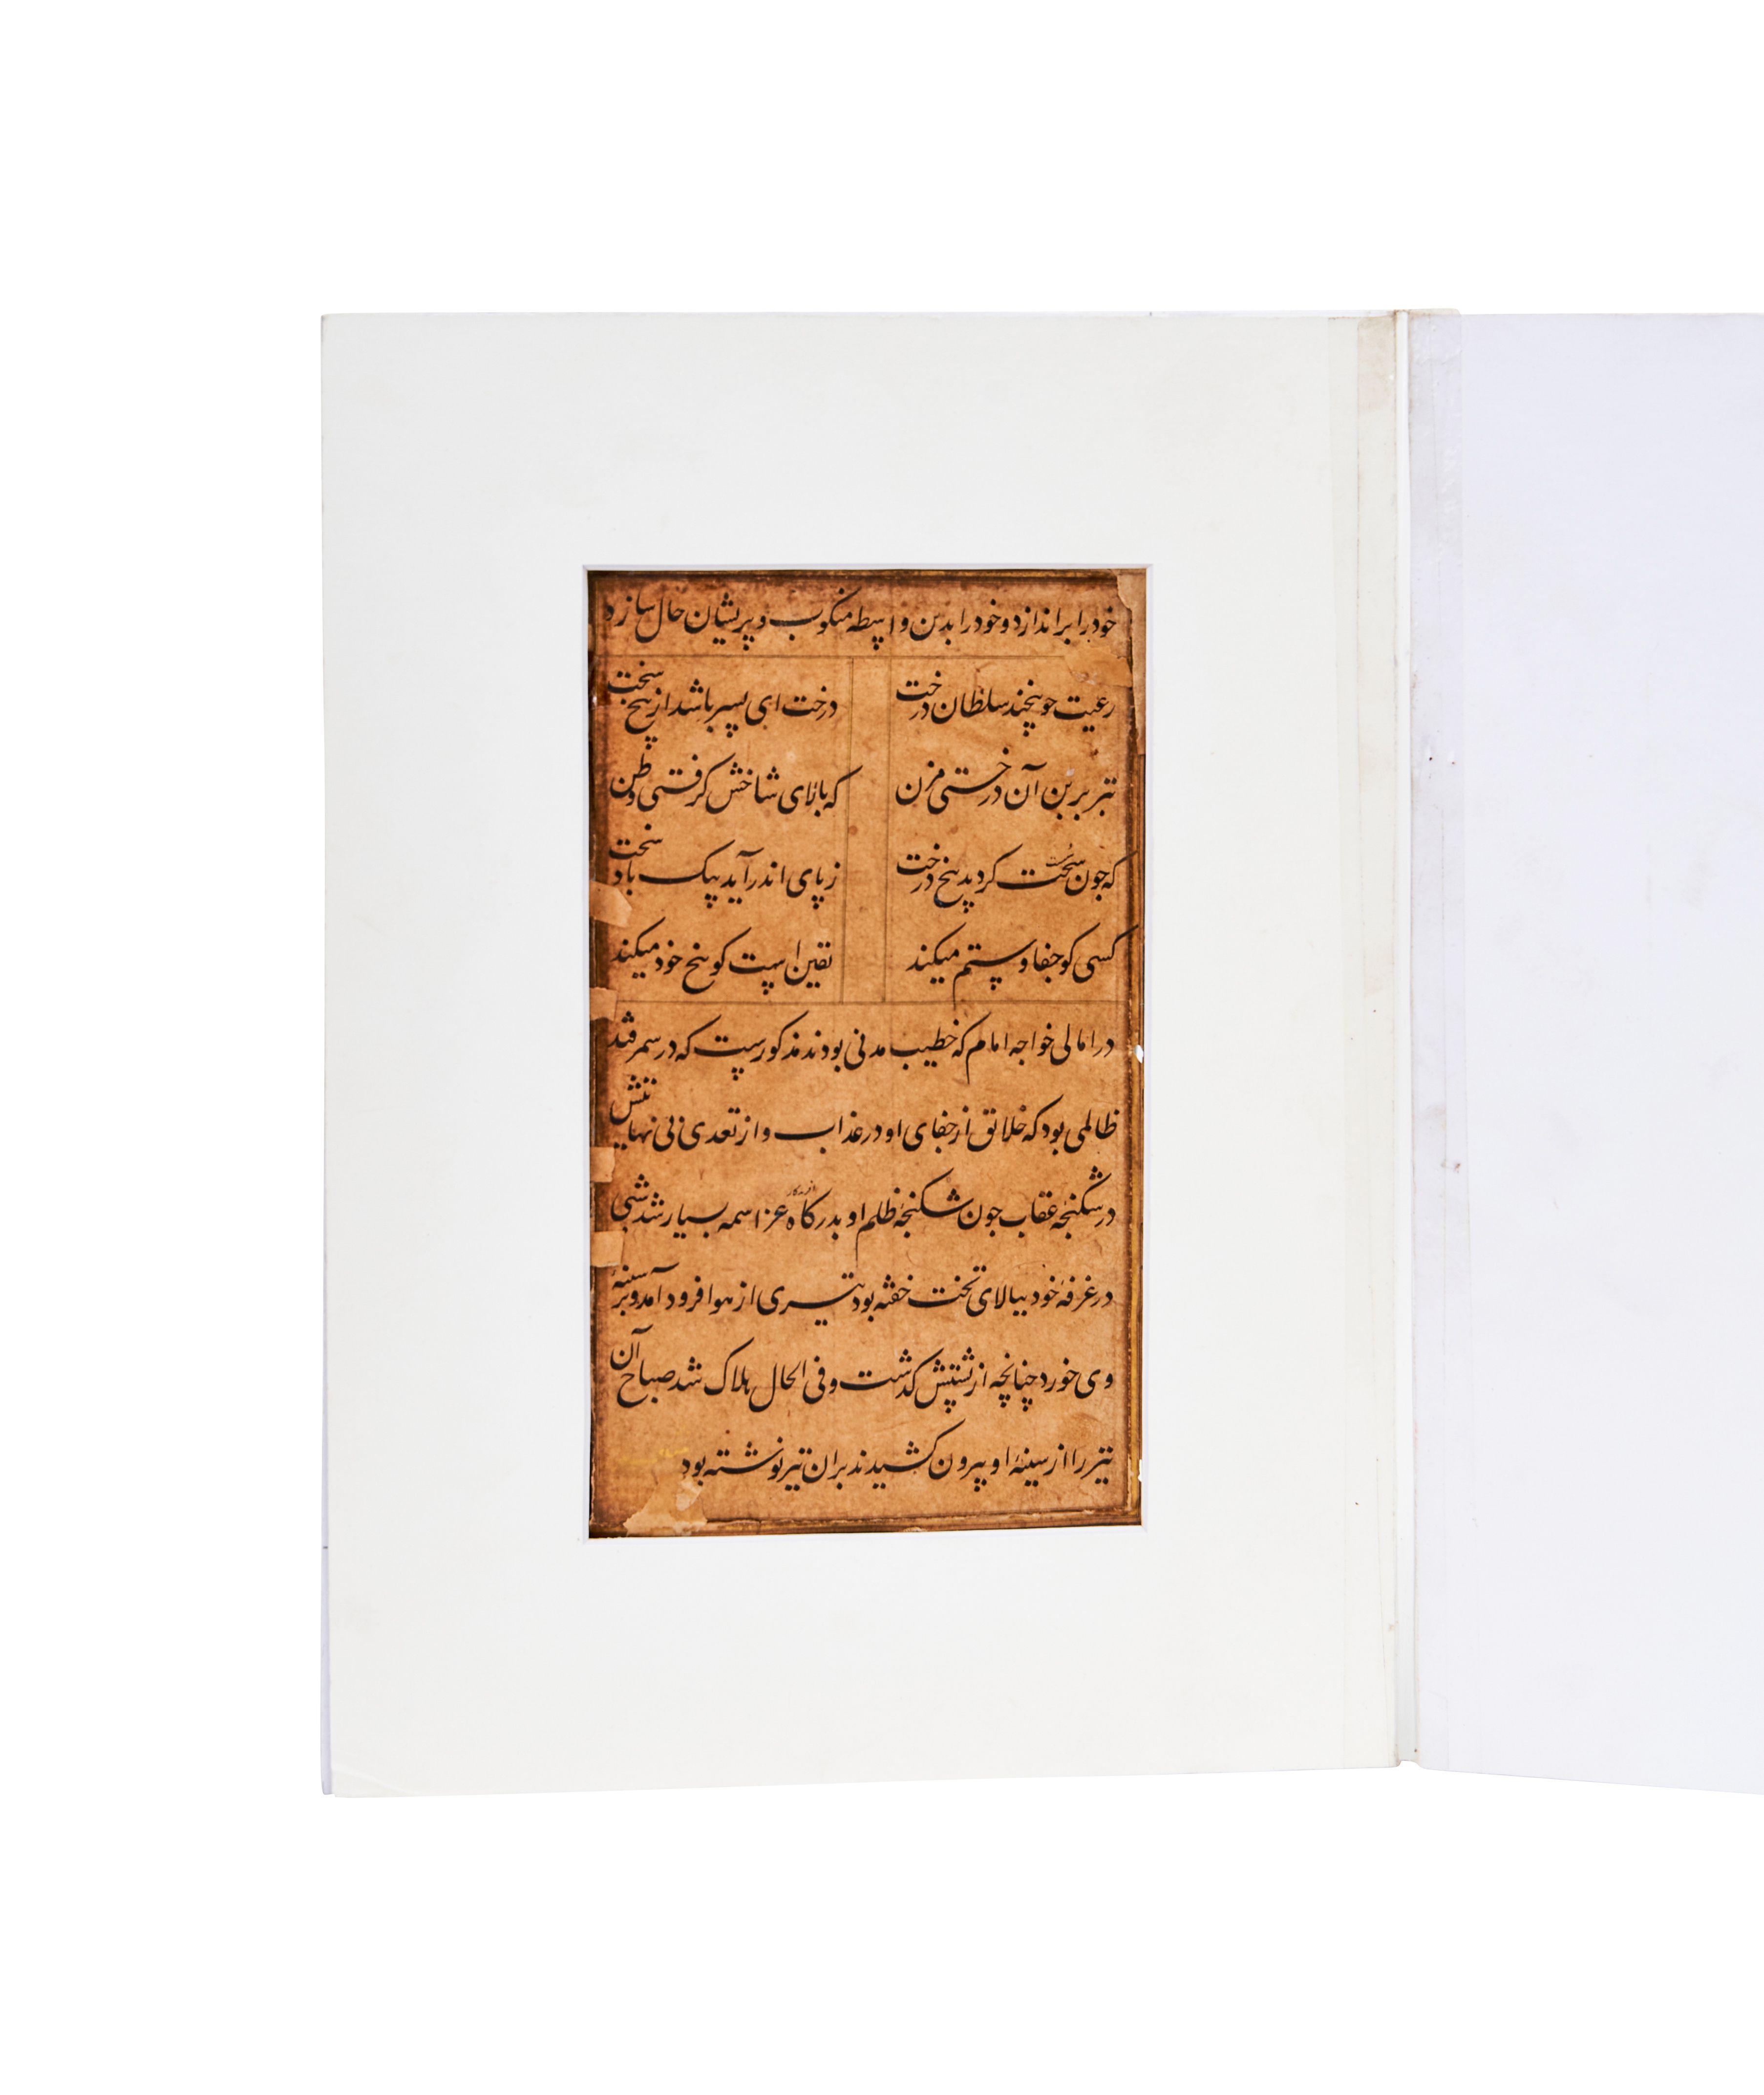 خود را براندازد و خود را بدین واسطه منکوب و پریشان حال سازد
رعیت جو بیخند سلطان درخت درخت ای پسر باشد از بیخ سخت
تبر بر بن آن درختی مزن که بالای شاخش کرفتی وطن
که جون سخت کردید بیخ درخت ز پای اندر آید بیک باد سخت
کسی کو جفا و ستم میکند یقین است کو بیخ خود میکند
در امالی خواجه امام که خطیب مدنی بودند مذکورست که در سمرقند
ظالمی بود که خلائق از جفای او در عذاب و از تعدی بی نهایتش
در شکنجهٔ عقاب جون شکنجهٔ ظلم او بدرکاه عز اسمه بسیار شد شبی
در غرفهٔ خود ببالای تخت خفته بود تیری از هوا فرود آمد و بر سینهٔ
وی خورد چنانچه از پشتش کذشت و فی الحال هلاک شد صباح آن
تیر را از سینهٔ او بیرون کشیدند بران تیر نوشته بود